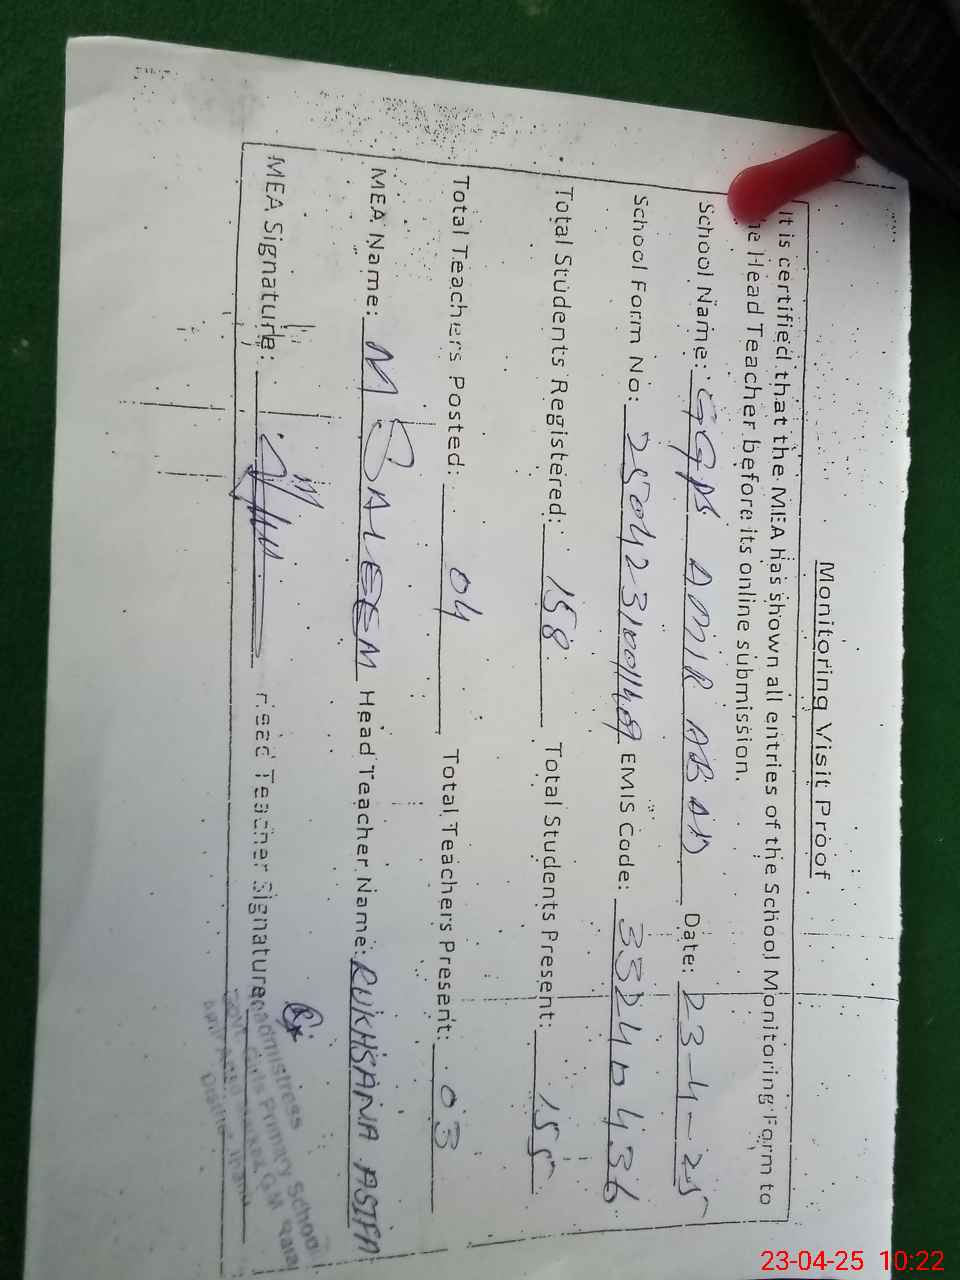 Monitoring Visit Proof
It is certified that the MEA has shown all entries of the School Monitoring Form to
Head Teacher before its online submission.
School Name: GGPS AMIR ABAD Date: 23-4-25
School Form No: EMIS Code:
Total Students Registered: 158 Total Students Present: 155
Total Teachers Posted: 04 Total Teachers Present: 03
MEA Name: M SALEEM Head Teacher Name: RUKHSANA ASIFA
MEA Signature: Head Teacher Signature
Headmistress
Govt. Girls Primary School
23-04-25 10:22